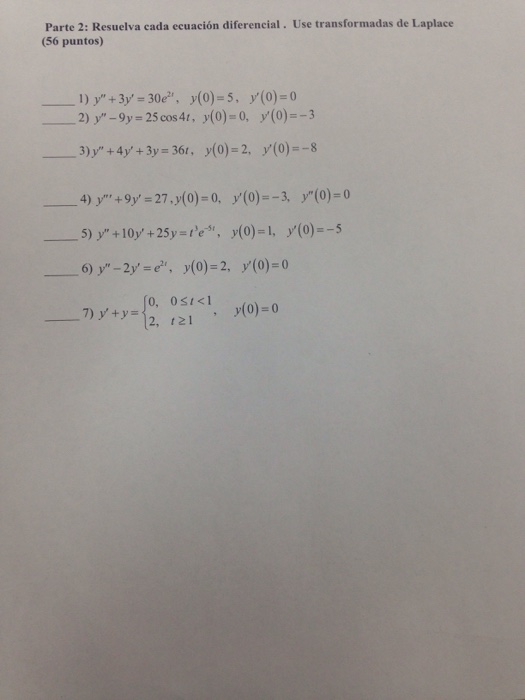 Parte 2: Resuelva cada ecuación diferencial. Use transformadas de Laplace
(56 puntos)
____ 1) y'' + 3y' = 30e²ᵗ, y(0) = 5, y'(0) = 0
____ 2) y'' − 9y = 25 cos 4t, y(0) = 0, y'(0) = −3
____ 3) y'' + 4y' + 3y = 36t, y(0) = 2, y'(0) = −8
____ 4) y''' + 9y' = 27, y(0) = 0, y'(0) = −3, y''(0) = 0
____ 5) y'' + 10y' + 25y = t³e⁻⁵ᵗ, y(0) = 1, y'(0) = −5
____ 6) y'' − 2y' = e²ᵗ, y(0) = 2, y'(0) = 0
____ 7) y' + y = {0, 0 ≤ t < 1
2, t ≥ 1 , y(0) = 0